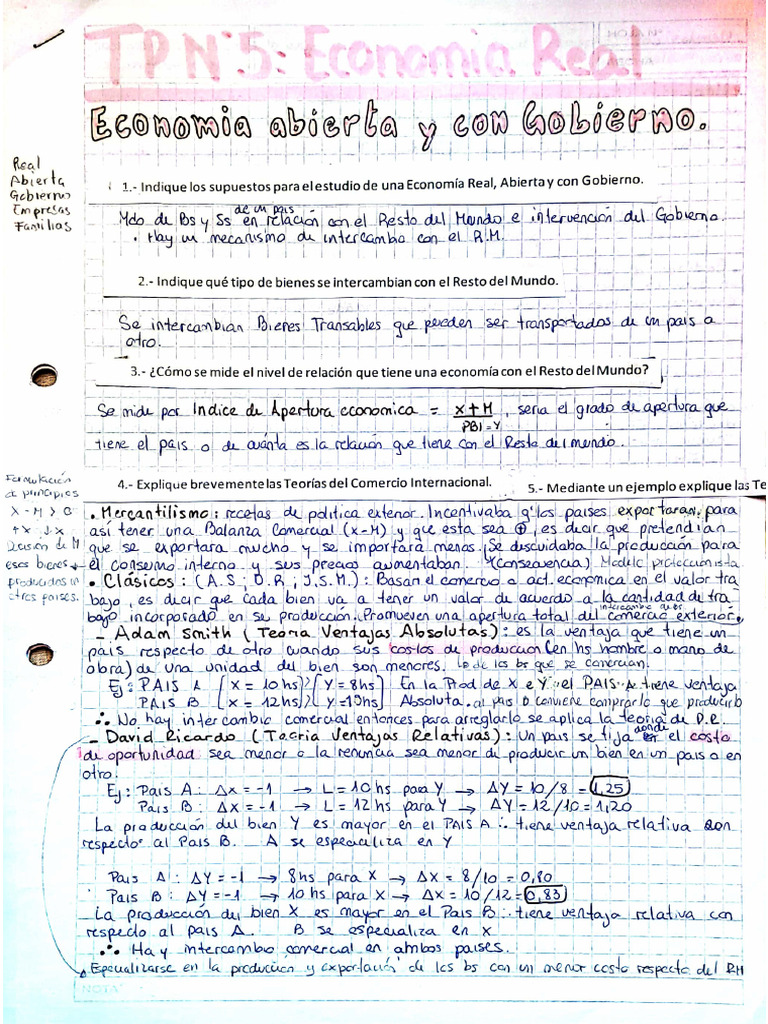 TP N°5: Economia Real
Economia abierta y con Gobierno.
Real
Abierta
Gobierno
Empresas
Familias
1.- Indique los supuestos para el estudio de una Economía Real, Abierta y con Gobierno.
de un pais
Mdo de Bs y Ss en relación con el Resto del Mundo e intervención del Gobierno.
• Hay un mecanismo de intercambio con el R.M.
2.- Indique qué tipo de bienes se intercambian con el Resto del Mundo.
Se intercambian Bienes Transables que pueden ser transportados de un pais a
otro.
3.- ¿Cómo se mide el nivel de relación que tiene una economía con el Resto del Mundo?
Se mide por Indice de Apertura economica = X+M / PBI=Y, seria el grado de apertura que
tiene el país o de cuánta es la relación que tiene con el Resto del mundo.
4.- Explique brevemente las Teorías del Comercio Internacional.
5.- Mediante un ejemplo explique las Te
Formulación
de principios
X - M > 0
↑X ↓X
Decisión de M
esos bienes
producidos en
otros paises.
• Mercantilismo: recetas de politica exterior. Incentivaba q' los paises exportaran para
así tener una Balanza Comercial (X-M) y que esta sea ⊕, es decir que pretendian
que se exportara mucho y se importara menos. Se descuidaba la producción para
el consumo interno y sus precios aumentaban. (Consecuencia) Modelo proteccionista
• Clásicos: (A.S; D.R; J.S.M.): Basan el comercio o act. economica en el valor tra
bajo, es decir que cada bien va a tener un valor de acuerdo a la cantidad de tra
bajo incorporado en su producción. Promueven una apertura total del comercio exterior,
- Adam Smith (Teoria Ventajas Absolutas): es la ventaja que tiene un
país respecto de otro cuando sus costos de producción (en hs hombre o mano de
obra) de una unidad del bien son menores. lo de los bs que se comercian.
Ej: PAIS A [X = 10hs] [Y = 8hs] En la Prod de X e Y el PAIS A tiene ventaja
PAIS B [X = 12hs] [Y = 10hs] Absoluta. al pais B conviene comprarlo que producirlo
∴ No hay intercambio comercial entonces para arreglarlo se aplica la teoria de D.R.
- David Ricardo (Teoria Ventajas Relativas): Un pais se fija donde el costo
de oportunidad sea menor o la renuncia sea menor de producir un bien en un pais o en
otro.
Ej: Pais A: ΔX = -1 → L = 10hs para Y → ΔY = 10/8 = 1,25
Pais B: ΔX = -1 → L = 12 hs para Y → ΔY = 12/10 = 1,20
La producción del bien Y es mayor en el PAIS A ∴ tiene ventaja relativa con
respecto al Pais B. A se especializa en Y
Pais A: ΔY = -1 → 8hs para X → ΔX = 8/10 = 0,80
Pais B: ΔY = -1 → 10 hs para X → ΔX = 10/12 = 0,83
La producción del bien X es mayor en el Pais B ∴ tiene ventaja relativa con
respecto al país A. B se especializa en X
∴ Hay intercambio comercial en ambos países.
Especializarse en la produccion y exportación de los bs con un menor costo respecto del RM
NOTA